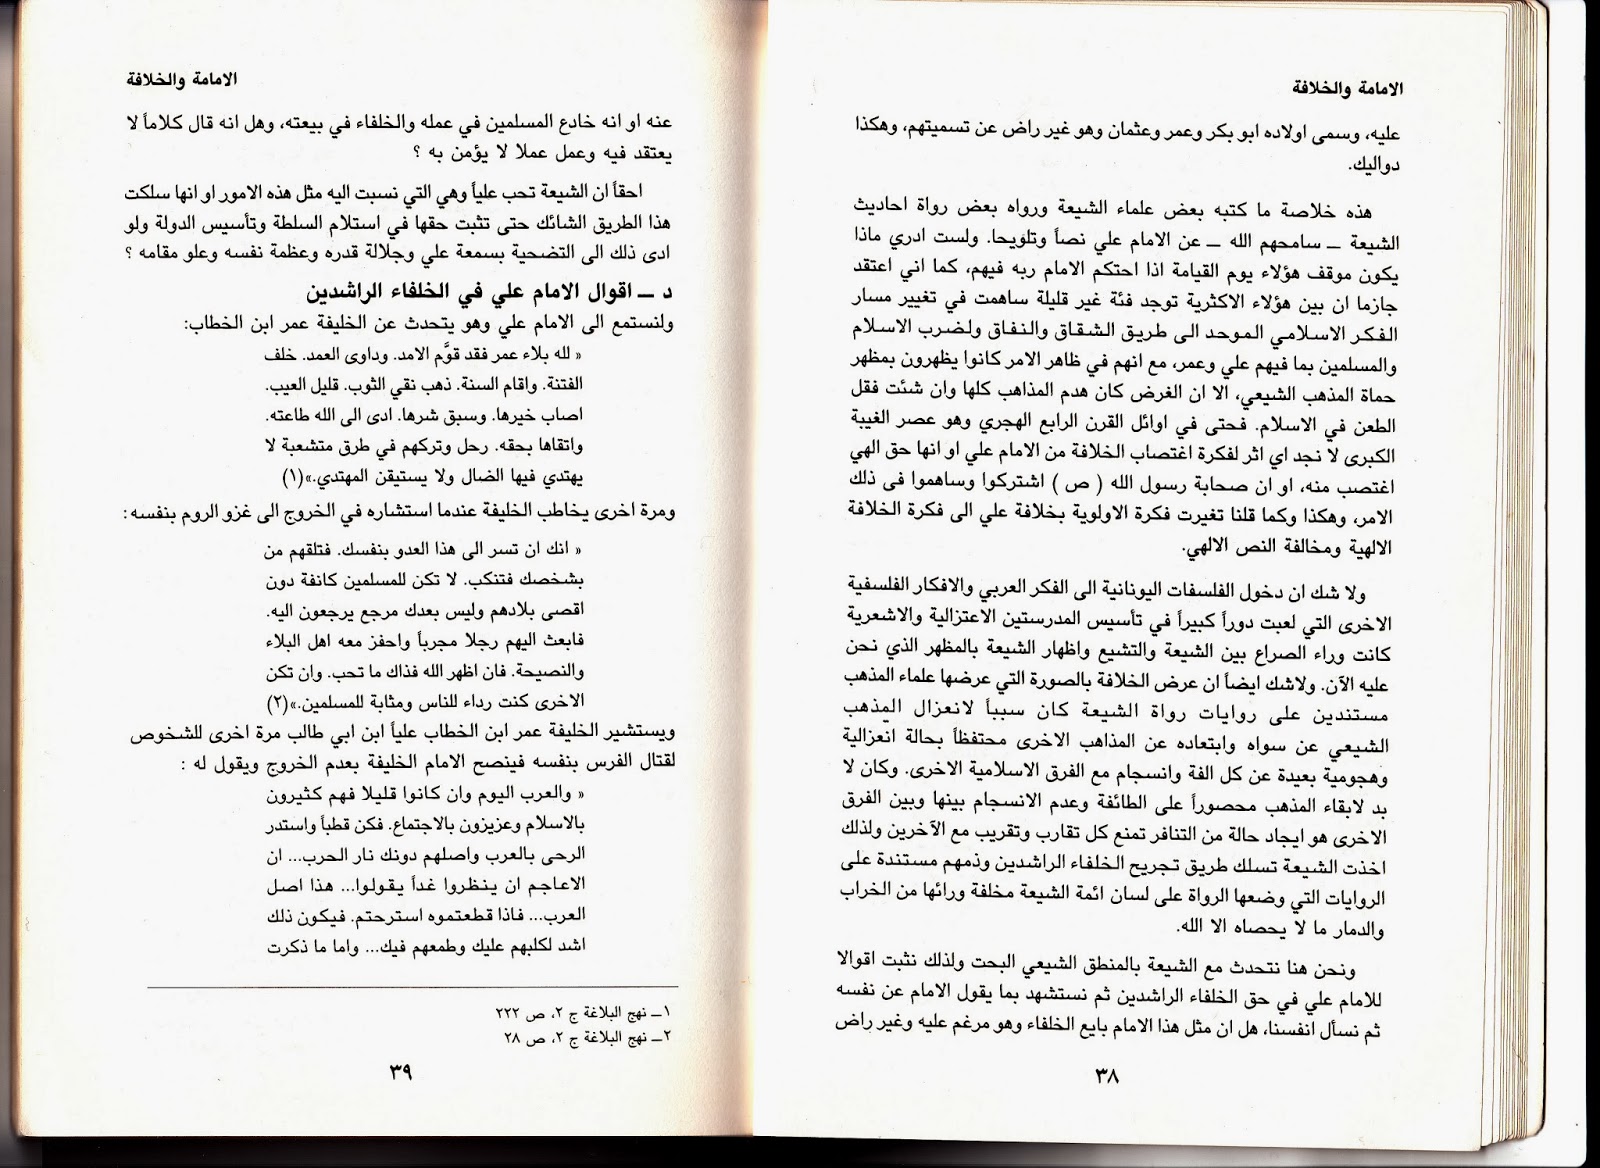 الامامة والخلافة
عليه، وسمى اولاده ابو بكر وعمر وعثمان وهو غير راض عن تسميتهم، وهكذا
دواليك.
هذه خلاصة ما كتبه بعض علماء الشيعة ورواه بعض رواة احاديث
الشيعة ــ سامحهم الله ــ عن الامام علي نصاً وتلويحا. ولست ادري ماذا
يكون موقف هؤلاء يوم القيامة اذا احتكم الامام ربه فيهم، كما اني اعتقد
جازما ان بين هؤلاء الاكثرية توجد فئة غير قليلة ساهمت في تغيير مسار
الفكر الاسلامي الموحد الى طريق الشقاق والنفاق ولضرب الاسلام
والمسلمين بما فيهم علي وعمر، مع انهم في ظاهر الامر كانوا يظهرون بمظهر
حماة المذهب الشيعي، الا ان الغرض كان هدم المذاهب كلها وان شئت فقل
الطعن في الاسلام. فحتى في اوائل القرن الرابع الهجري وهو عصر الغيبة
الكبرى لا نجد اي اثر لفكرة اغتصاب الخلافة من الامام علي او انها حق الهي
اغتصب منه، او ان صحابة رسول الله ( ص ) اشتركوا وساهموا فى ذلك
الامر، وهكذا وكما قلنا تغيرت فكرة الاولوية بخلافة علي الى فكرة الخلافة
الالهية ومخالفة النص الالهي.
ولا شك ان دخول الفلسفات اليونانية الى الفكر العربي والافكار الفلسفية
الاخرى التي لعبت دوراً كبيراً في تأسيس المدرستين الاعتزالية والاشعرية
كانت وراء الصراع بين الشيعة والتشيع واظهار الشيعة بالمظهر الذي نحن
عليه الآن. ولاشك ايضاً ان عرض الخلافة بالصورة التي عرضها علماء المذهب
مستندين على روايات رواة الشيعة كان سبباً لانعزال المذهب
الشيعي عن سواه وابتعاده عن المذاهب الاخرى محتفظاً بحالة انعزالية
وهجومية بعيدة عن كل الفة وانسجام مع الفرق الاسلامية الاخرى. وكان لا
بد لابقاء المذهب محصوراً على الطائفة وعدم الانسجام بينها وبين الفرق
الاخرى هو ايجاد حالة من التنافر تمنع كل تقارب وتقريب مع الآخرين ولذلك
اخذت الشيعة تسلك طريق تجريح الخلفاء الراشدين وذمهم مستندة على
الروايات التي وضعها الرواة على لسان ائمة الشيعة مخلفة ورائها من الخراب
والدمار ما لا يحصاه الا الله.
ونحن هنا نتحدث مع الشيعة بالمنطق الشيعي البحت ولذلك نثبت اقوالا
للامام علي في حق الخلفاء الراشدين ثم نستشهد بما يقول الامام عن نفسه
ثم نسأل انفسنا، هل ان مثل هذا الامام بايع الخلفاء وهو مرغم عليه وغير راض
٣٨
الامامة والخلافة
عنه او انه خادع المسلمين في عمله والخلفاء في بيعته، وهل انه قال كلاماً لا
يعتقد فيه وعمل عملا لا يؤمن به ؟
احقاً ان الشيعة تحب علياً وهي التي نسبت اليه مثل هذه الامور او انها سلكت
هذا الطريق الشائك حتى تثبت حقها في استلام السلطة وتأسيس الدولة ولو
ادى ذلك الى التضحية بسمعة علي وجلالة قدره وعظمة نفسه وعلو مقامه ؟
د ــ اقوال الامام علي في الخلفاء الراشدين
ولنستمع الى الامام علي وهو يتحدث عن الخليفة عمر ابن الخطاب:
« لله بلاء عمر فقد قوَّم الامد. وداوى العمد. خلف
الفتنة. واقام السنة. ذهب نقي الثوب. قليل العيب.
اصاب خيرها. وسبق شرها. ادى الى الله طاعته.
واتقاها بحقه. رحل وتركهم في طرق متشعبة لا
يهتدي فيها الضال ولا يستيقن المهتدي.»(١)
ومرة اخرى يخاطب الخليفة عندما استشاره في الخروج الى غزو الروم بنفسه :
« انك ان تسر الى هذا العدو بنفسك. فتلقهم من
بشخصك فتنكب. لا تكن للمسلمين كانفة دون
اقصى بلادهم وليس بعدك مرجع يرجعون اليه.
فابعث اليهم رجلا مجرباً واحفز معه اهل البلاء
والنصيحة. فان اظهر الله فذاك ما تحب. وان تكن
الاخرى كنت رداء للناس ومثابة للمسلمين.»(٢)
ويستشير الخليفة عمر ابن الخطاب علياً ابن ابي طالب مرة اخرى للشخوص
لقتال الفرس بنفسه فينصح الامام الخليفة بعدم الخروج ويقول له :
« والعرب اليوم وان كانوا قليلا فهم كثيرون
بالاسلام وعزيزون بالاجتماع. فكن قطباً واستدر
الرحى بالعرب واصلهم دونك نار الحرب... ان
الاعاجم ان ينظروا غداً يقولوا... هذا اصل
العرب... فاذا قطعتموه استرحتم. فيكون ذلك
اشد لكلبهم عليك وطمعهم فيك... واما ما ذكرت
١ــ نهج البلاغة ج ٢، ص ٢٢٢
٢ــ نهج البلاغة ج ٢، ص ٢٨
٣٩